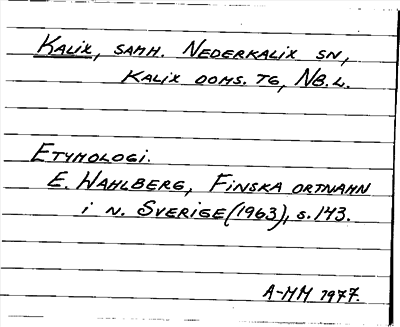 Kalix, samh. Nederkalix sn,
Kalix doms. tg, Nb.l.
Etymologi.
E. Wahlberg, Finska ortnamn
i n. Sverige (1963), s. 143.
A-MM 1977.